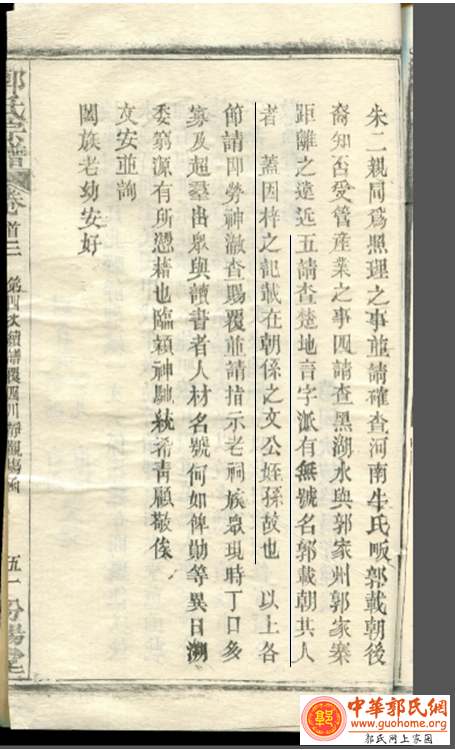 朱二親同爲照理之事並請確查河南牛氏畈郭載朝後
裔知否受管産業之事四請查黑湖水與郭家州郭家寨
距離之遠近五請查楚地言字派有無號名郭載朝其人
者 蓋因梓之記載在朝係之文公姪孫故也 以上各
節請即勞神澈查賜覆並請指示老祠族眾現時丁口多
寡及超羣出眾與讀書者人材名號何如俾勛等異日溯
委窮源有所慿藉也臨穎神馳統希青顧敬俟
文安並詢
闔族老幼安好
郭氏宗譜
卷首三
第四次續譜覆四川靜觀場函
五一
汾陽堂
中華郭氏網
www.guohome.org
郭氏网上家園